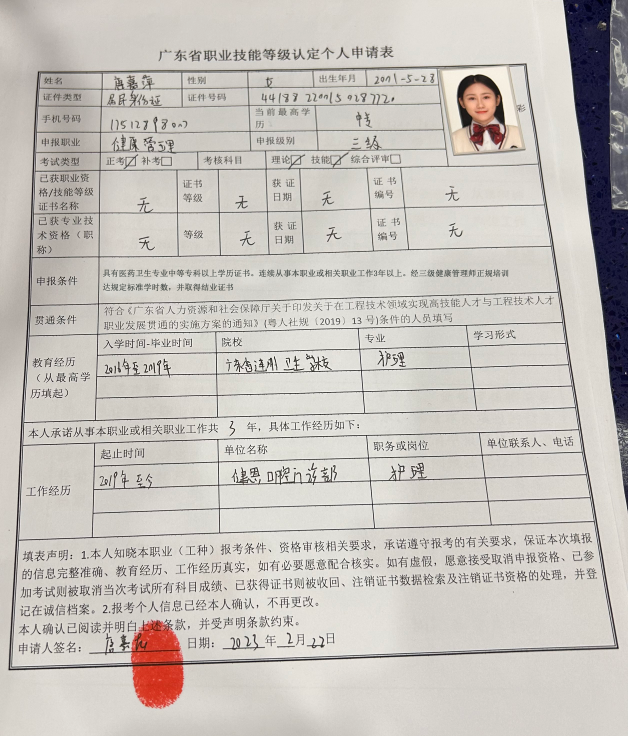 广东省职业技能等级认定个人申请表
姓名 唐嘉萍 性别 女 出生年月 2001-5-28
证件类型 居民身份证 证件号码
手机号码 当前最高学历: 中专
申报职业 健康管理 申报级别 三级
考试类型 正考☑ 补考☐ 考核科目 理论☑ 技能☑ 综合评审☐
彩
已获职业资格/技能等级证书名称 无 证书等级 无 获证日期 无 证书编号 无
已获专业技术资格(职称) 无 等级 无 获证日期 无 证书编号 无
申报条件 具有医药卫生专业中等专科以上学历证书。连续从事本职业或相关职业工作3年以上。经三级健康管理师正规培训
达规定标准学时数,并取得结业证书
贯通条件 符合《广东省人力资源和社会保障厅关于印发关于在工程技术领域实现高技能人才与工程技术人才
职业发展贯通的实施方案的通知》(粤人社规〔2019〕13 号)条件的人员填写
教育经历(从最高学历填起) 入学时间-毕业时间 院校 专业 学习形式
2016年至2019年 广东省连州卫生学校 护理
本人承诺从事本职业或相关职业工作共 3 年,具体工作经历如下:
工作经历 起止时间 单位名称 职务或岗位 单位联系人、电话
2019年至今 口腔门诊部 护理
填表声明:1.本人知晓本职业(工种)报考条件、资格审核相关要求,承诺遵守报考的有关要求,保证本次填报
的信息完整准确、教育经历、工作经历真实,如有必要愿意配合核实。如有虚假,愿意接受取消申报资格、已参
加考试则被取消当次考试所有科目成绩、已获得证书则被收回、注销证书数据检索及注销证书资格的处理,并登
记在诚信档案。2.报考个人信息已经本人确认,不再更改。
本人确认已阅读并明白上述条款,并受声明条款约束。
申请人签名: 唐嘉萍 日期: 2023 年 2 月 22 日